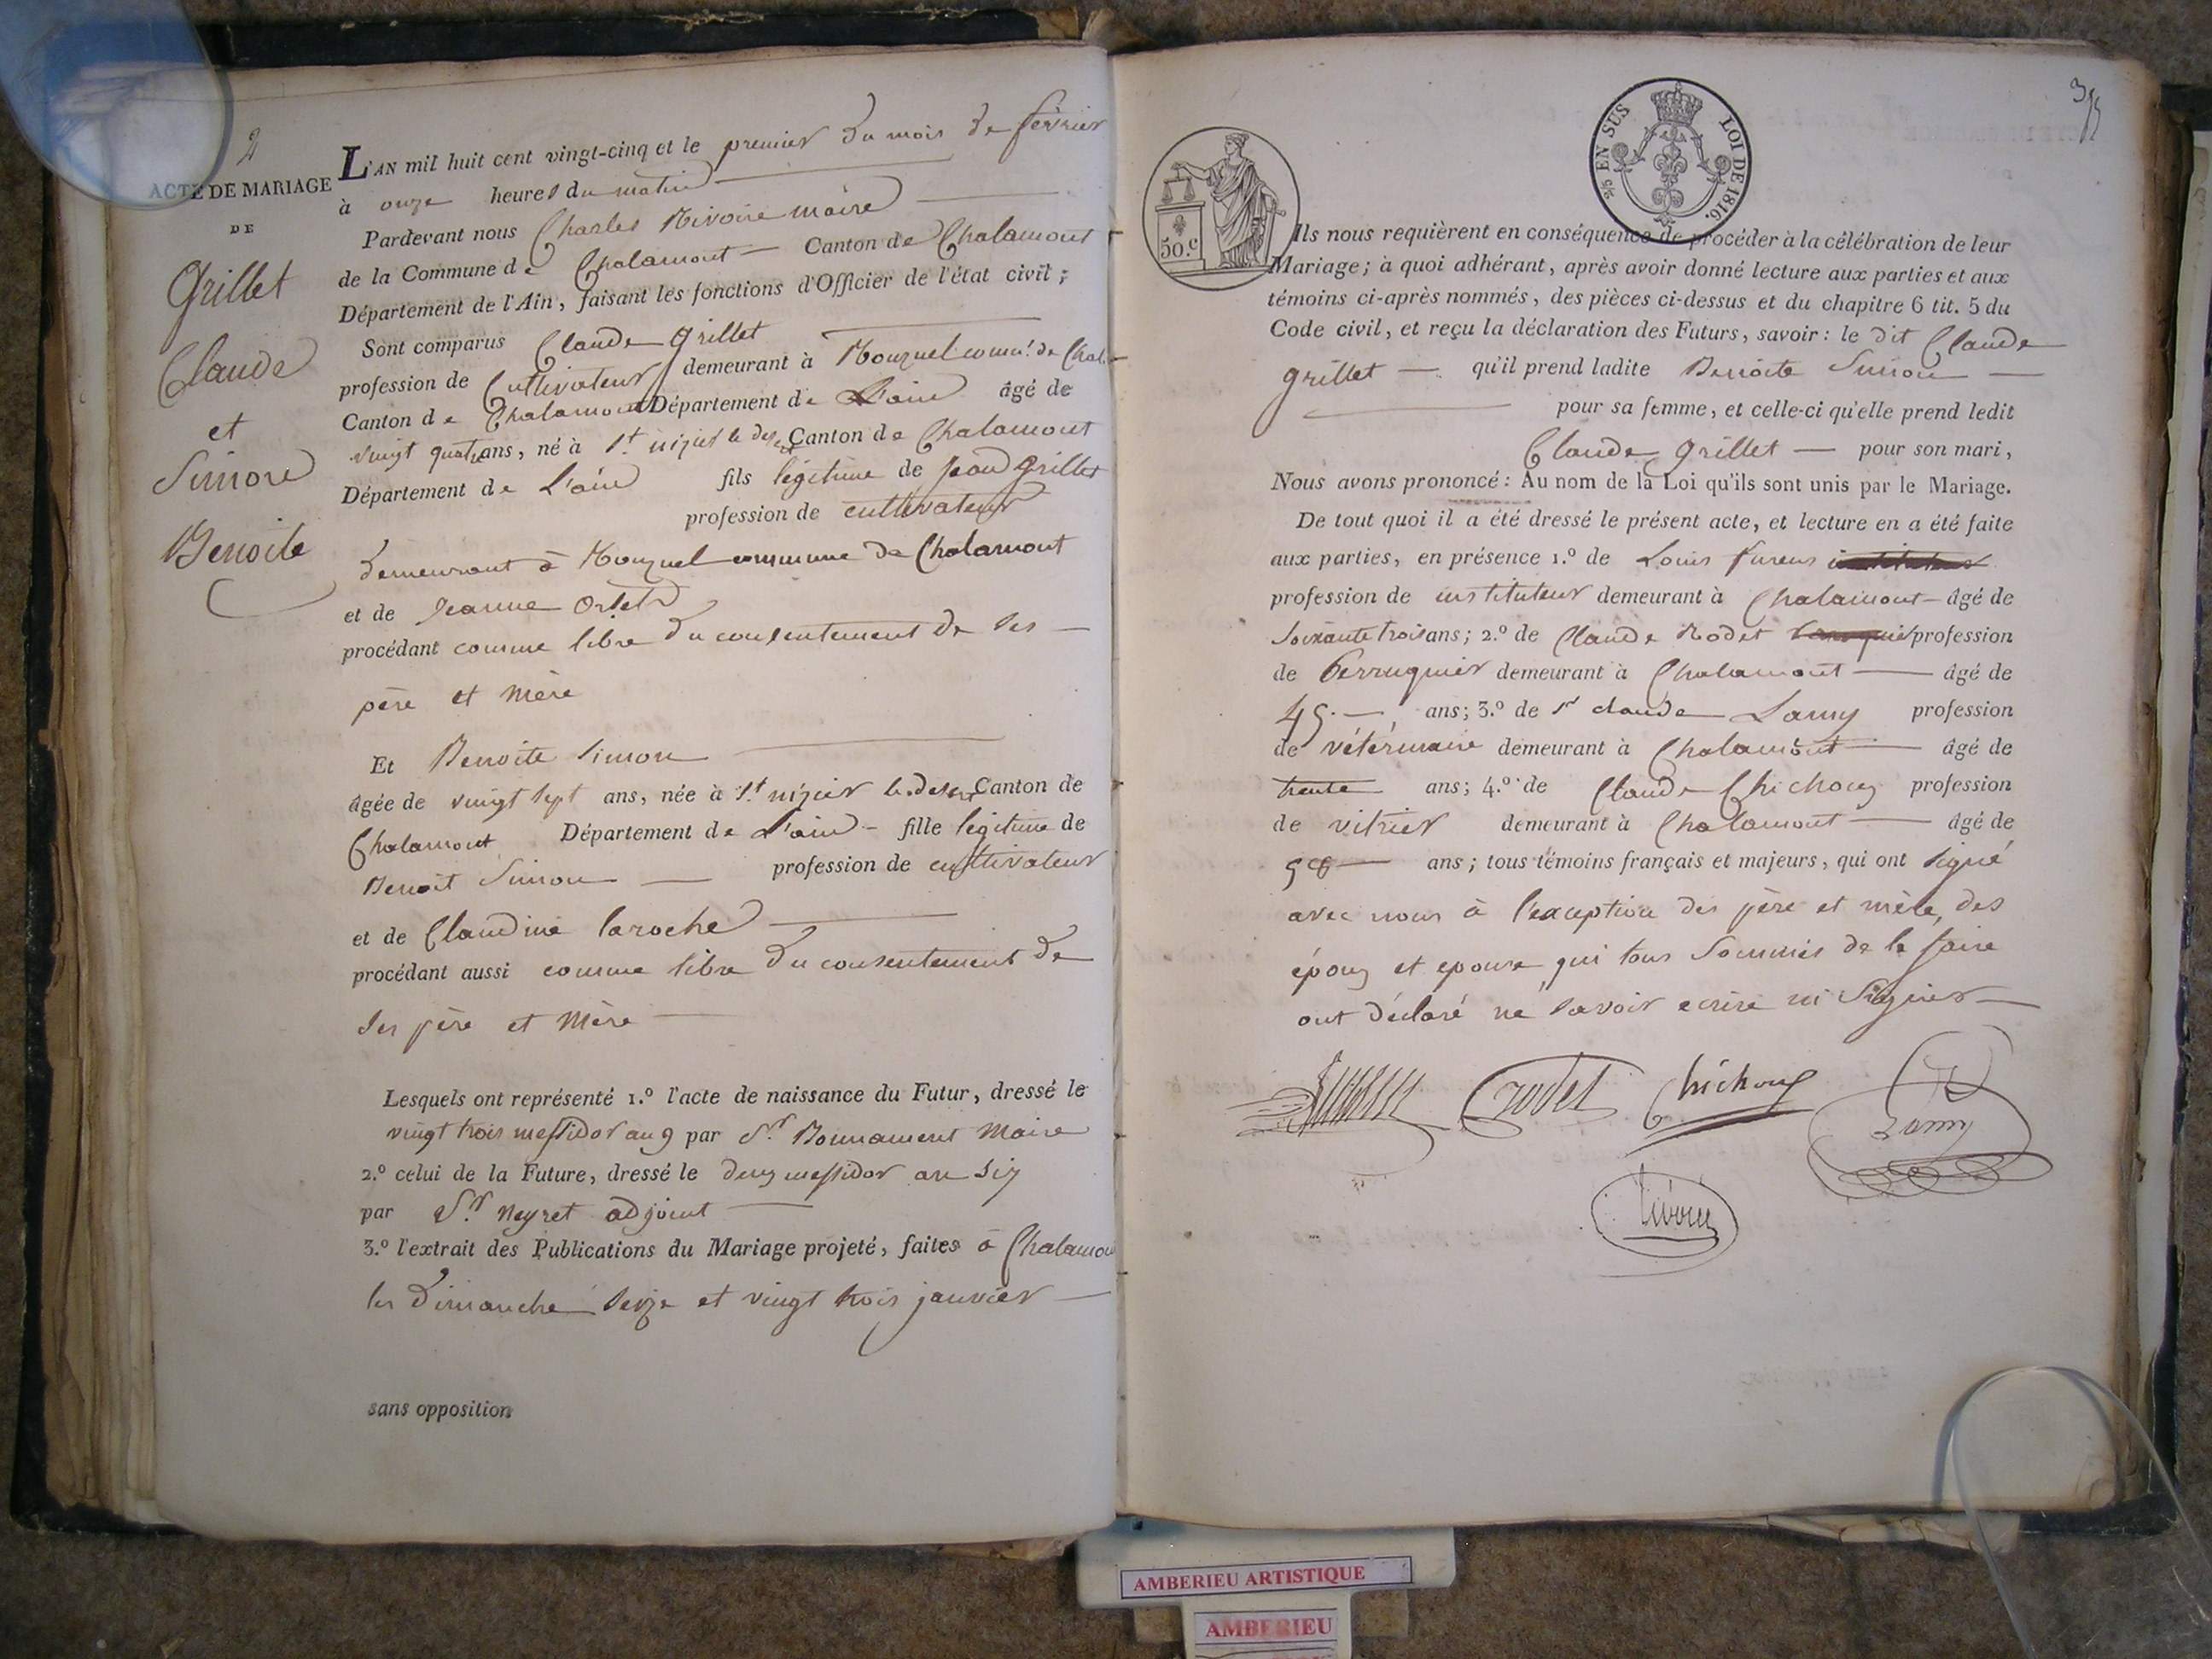 2
ACTE DE MARIAGE
DE
Grillet
Claude
et
Simon
Benoite
L'AN mil huit cent vingt-cinq et le premier du mois de février
à onze heures du matin
Pardevant nous Charles Rivoire maire
de la Commune de Chalamont Canton de Chalamont
Département de l'Ain, faisant les fonctions d'Officier de l'état civil;
Sont comparus Claude Grillet
profession de Cultivateur demeurant à Mouquel comm. de Chal.
Canton de Chalamont Département de L'ain âgé de
vingt quatre ans, né à St nizier le desert Canton de Chalamont
Département de L'ain fils légitime de jean Grillet
profession de cultivateur
demeurant à Mouquel commune de Chalamont
et de jeanne
procédant comme libre du consentement de ses
père et mère
Et Benoite Simon
âgée de vingt sept ans, née à St nizier le desert Canton de
Chalamont Département de L'ain fille légitime de
Benoit Simon profession de cultivateur
et de Claudine laroche
procédant aussi comme libre du consentement de
ses père et mère
Lesquels ont représenté 1.º l'acte de naissance du Futur, dressé le
vingt trois messidor an 9 par Sr. Bonnament Maire
2.º celui de la Future, dressé le deux messidor an six
par Sr. Neyret adjoint
3.º l'extrait des Publications du Mariage projeté, faites à Chalamont
les dimanche seize et vingt trois janvier
sans opposition
EN SUS LOI DE 1816.
50.c
Ils nous requièrent en conséquence de procéder à la célébration de leur
Mariage; à quoi adhérant, après avoir donné lecture aux parties et aux
témoins ci-après nommés, des pièces ci-dessus et du chapitre 6 tit. 5 du
Code civil, et reçu la déclaration des Futurs, savoir: le dit Claude
grillet qu'il prend ladite Benoite Simon
pour sa femme, et celle-ci qu'elle prend ledit
Claude grillet pour son mari,
Nous avons prononcé: Au nom de la Loi qu'ils sont unis par le Mariage.
De tout quoi il a été dressé le présent acte, et lecture en a été faite
aux parties, en présence 1.º de Louis furens
profession de instituteur demeurant à Chalamont âgé de
soixante trois ans; 2.º de Claude Rodet profession
de Perruquier demeurant à Chalamont âgé de
45 ans; 3.º de Sr claude Lamy profession
de vétérinaire demeurant à Chalamont âgé de
trente ans; 4.º de Claude Chichoux profession
de vitrier demeurant à Chalamont âgé de
ans; tous témoins français et majeurs, qui ont signé
avec nous à l'exception des père et mère, des
époux et epouse qui tous sommés de le faire
ont déclaré ne savoir ecrire ni signer
Rodet
Chichoux
Lamy
Rivoire
AMBERIEU ARTISTIQUE
AMBERIEU